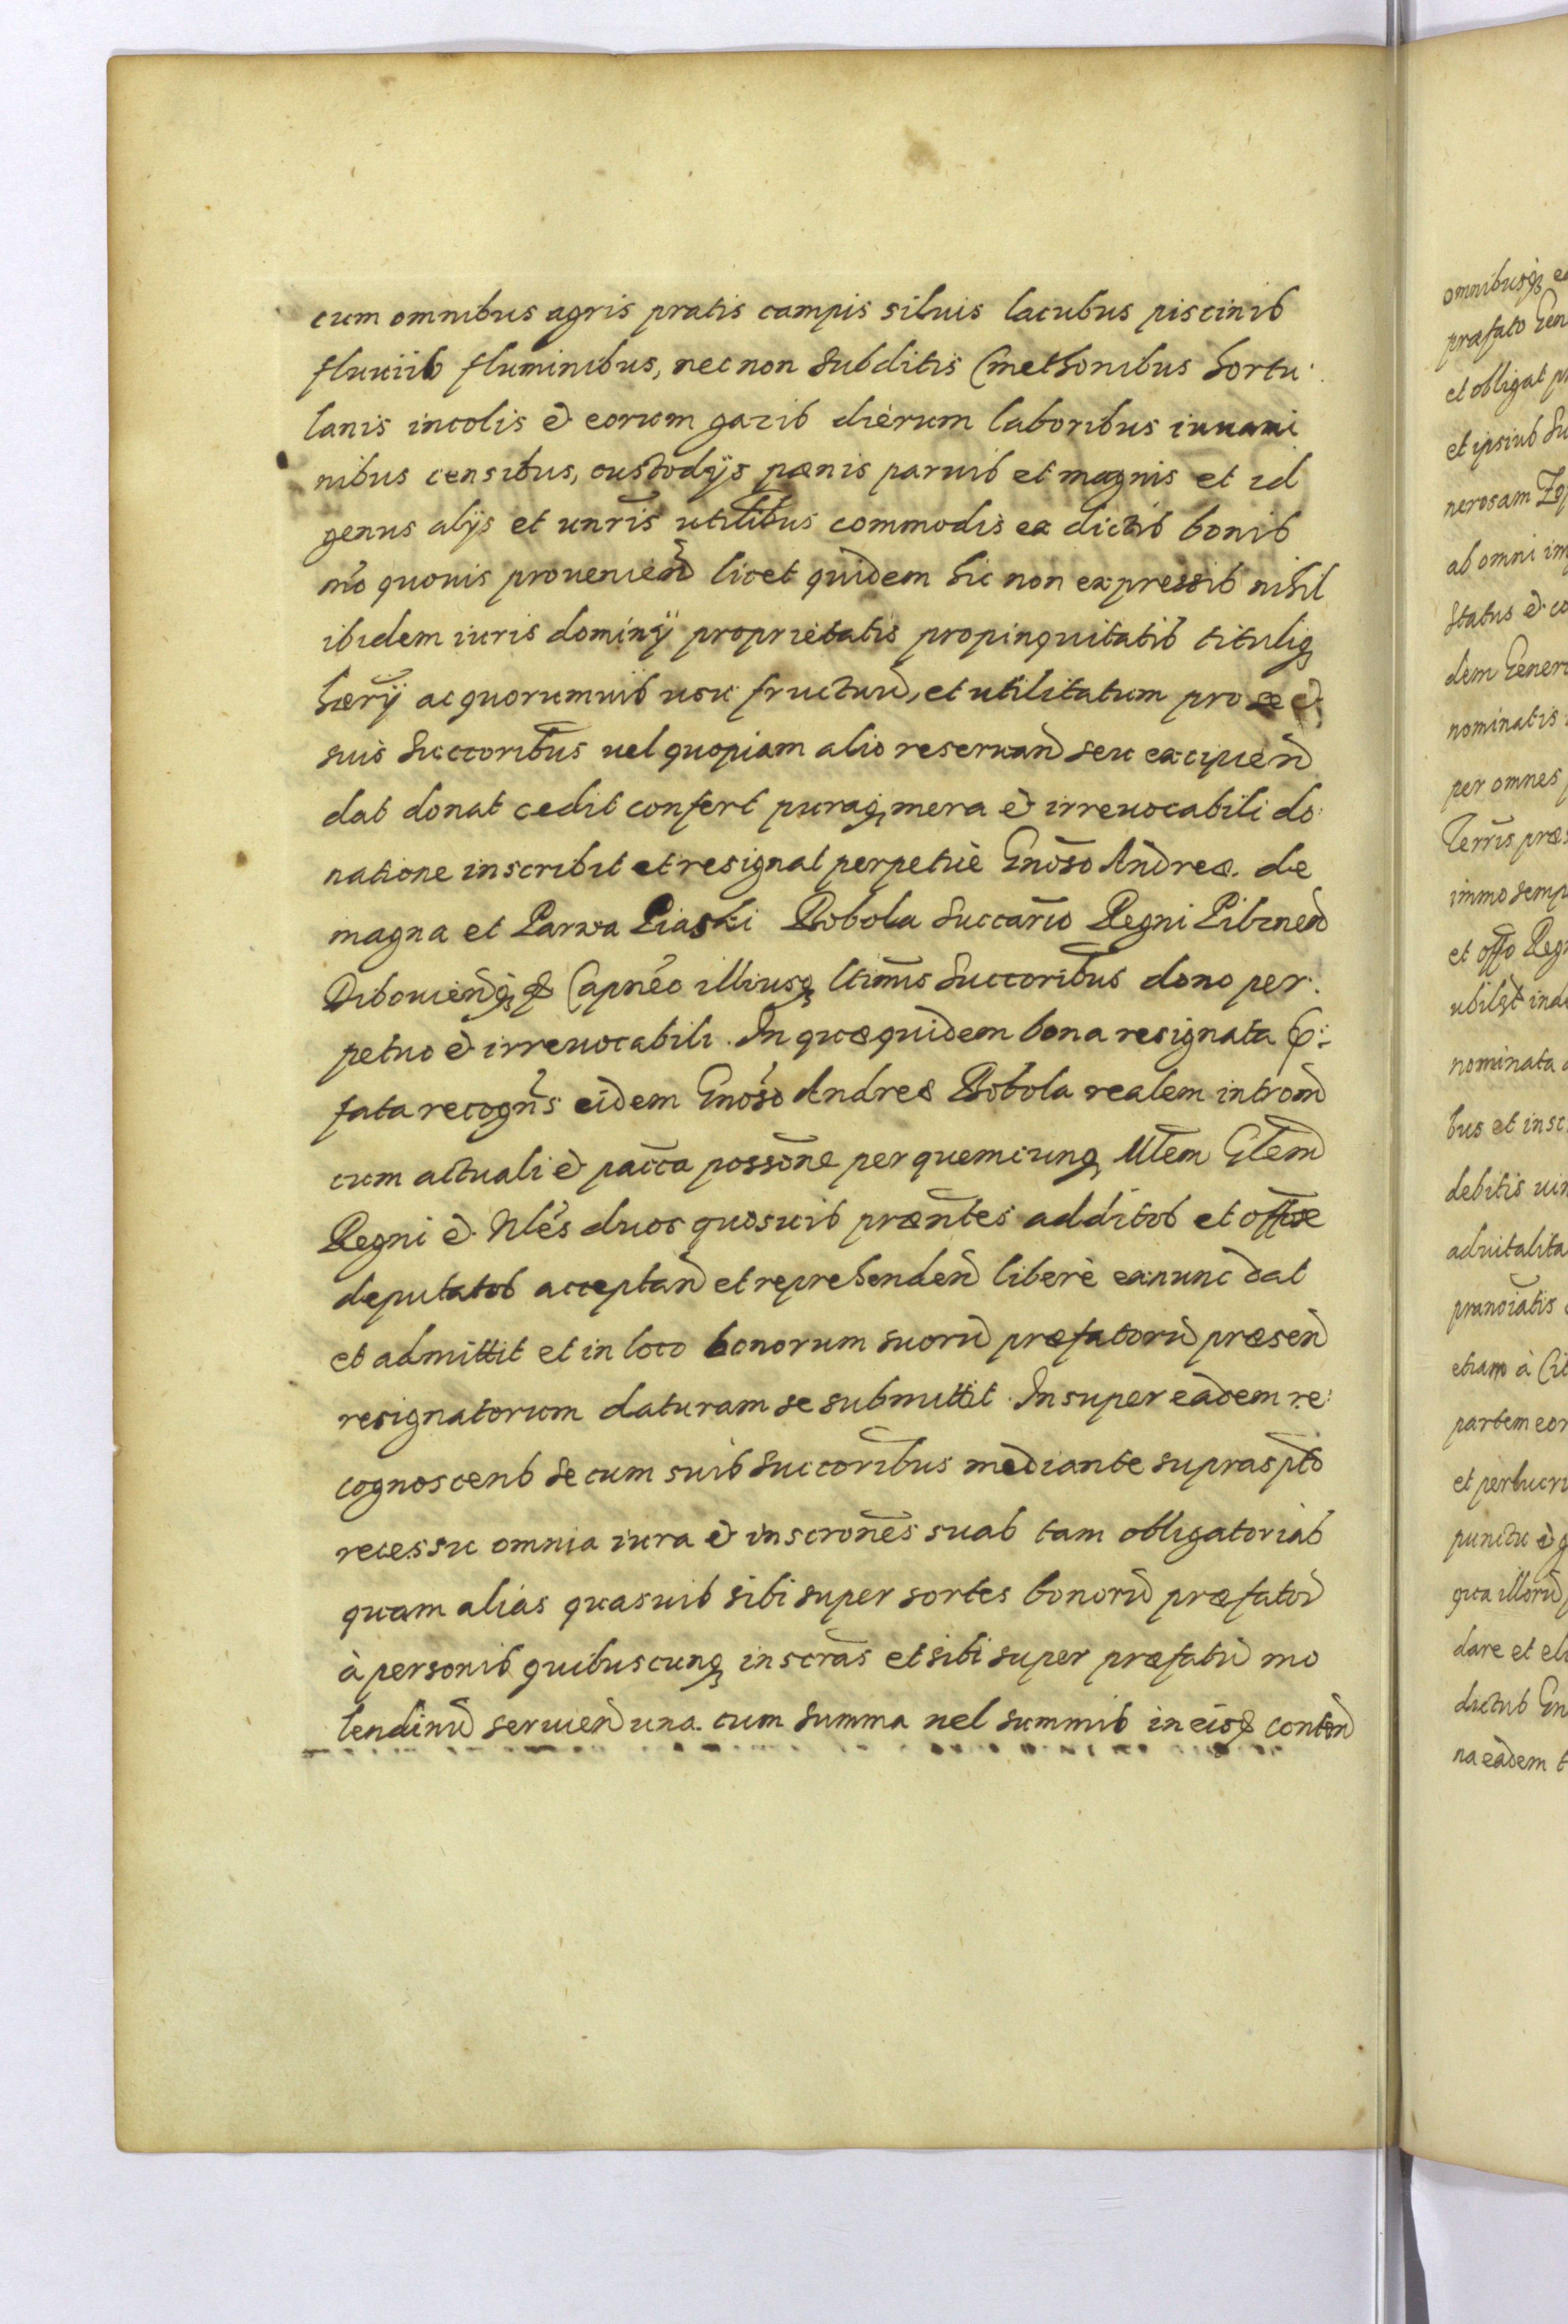 cum omnibus agris pratis campis siluis lacubus piscinis
fluuiis fluminibus, nec non subditis Cmethonibus hortu
lanis incolis & eorum gazis dierum laboribus iuuami
nibus censibus, custodijs pœnis paruis et magnis et id
genus alijs et unr̃is utilib̃us commodis ex dictis bonis
mõ quouis prouenieñ licet quidem hic non expressis nihil
ibidem iuris dominij proprietatis propinquitatis tituliq;
hær̃ij ac quorumuis usu fructuũ, et utilitatum pro se &
suis succoribũs uel quopiam alio reseruañ seu excipieñ
dat donat cedit confert puraq; mera & irreuocabili do
natione inscribit et resignat perpetuè Gnõso Andreæ de
magna et Parwa Piaski Bobola Succar̃io Regni Pilzneñ
Dibouieñq; & Capnẽo illiusq; ltim̃is Succorib̃us dono per
petuo & irreuocabili. In quæquidem bona resignata p:
fata recogñs eidem Gnõso Andreæ Bobola realem introm̃
cum actuali & pacc̃a possõne per quemcunq; Mlẽm Glẽm
Regni & Nlẽs duos quosuis præñtes additos et off̃ose
deputatos acceptañ et reprehendeñ liberè exnunc dat
et admittit et in loco bonorum suorũ præfatorũ præseñ
resignatorum daturam se submittit. Insuper eadem re:
cognoscens se cum suis succorib̃us mediante suprasp̃to
recessu omnia iura & inscronẽs suas tam obligatorias
quam alias quasuis sibi super sortes bonorũ præfatoũ
à personis quibuscunq; inscrãs et sibi super præfatũ mo
lendinũ seruieñ una cum summa uel summis in eisd̃ conteñ
omnibusq; ea
præfato Gen
et obligat pr
et ipsius Su
nerosam Zop
ab omni im
Status & co
dem Genero
nominatis
per omnes
Terr̃is præs
immo semp
et offo Reg
nominata
bus et insc
debitis uin
aduitalita
prænoĩatis
etiam à Ci
partem eor
et perlucru
punctu &
qua illorũ
dare et el
ductus Gn
na eadem t